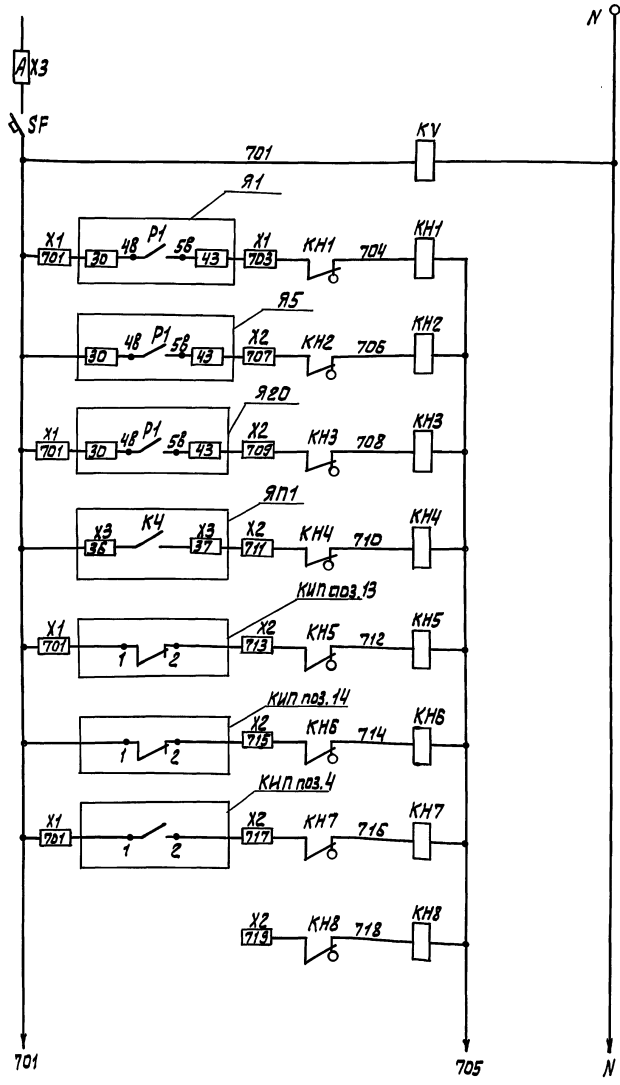 N
A X3
SF
701 KV
Я1
X1 701 30 4В P1 5В 43 X1 703 KH1 704 KH1
Я5
30 4В P1 5В 43 X2 707 KH2 706 KH2
Я20
X1 701 30 4В P1 5В 43 X2 709 KH3 708 KH3
ЯП1
X3 36 K4 X3 37 X2 711 KH4 710 KH4
КИП поз.13
X1 701 1 2 X2 713 KH5 712 KH5
КИП поз.14
1 2 X2 715 KH6 714 KH6
КИП поз.4
X1 701 1 2 X2 717 KH7 716 KH7
X2 719 KH8 718 KH8
701 705 N